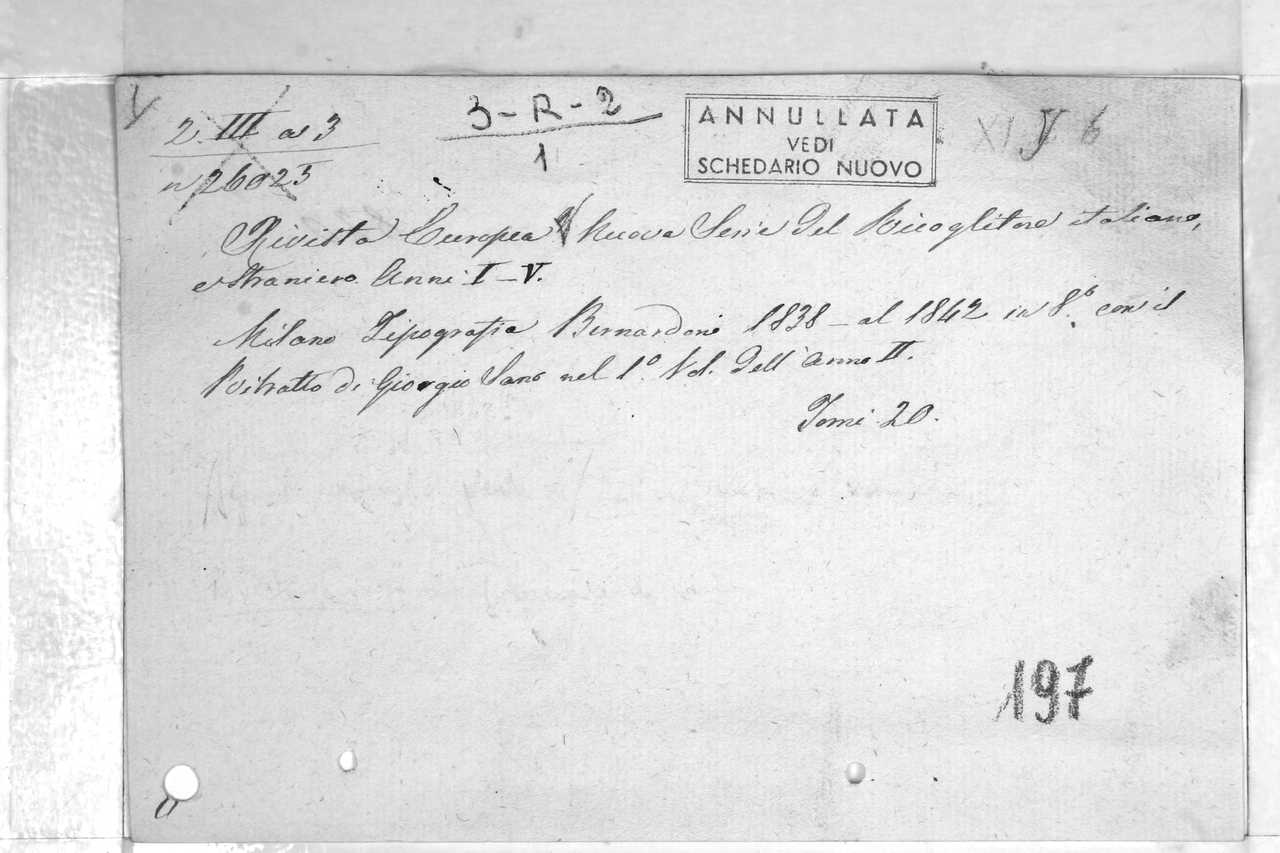 2. III a 3
n 26023
3-R-2
1
ANNULLATA
VEDI
SCHEDARIO NUOVO
XI V 6
Rivista Europea Nuova Serie del Ricoglitore italiano,
e straniero. Anni I-V.
Milano Tipografia Bernardoni 1838 - al 1842 in 8.° con il
Ritratto di Giorgio Sand nel 1.° Vol. dell'anno II.
Tomi 20.
197